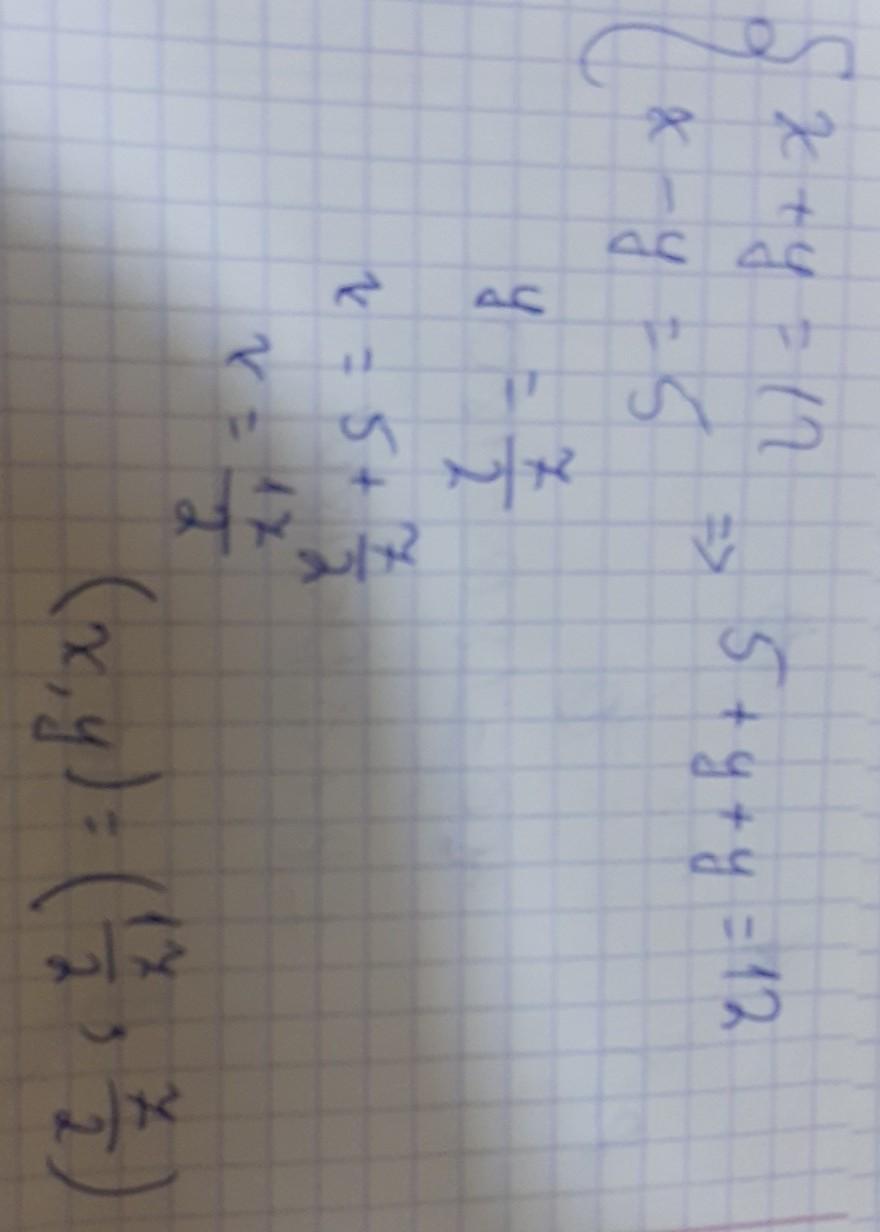 x + y = 12 ⇒ 5 + y + y = 12
x - y = 5
y = 7/2
x = 5 + 7/2
x = 17/2
(x, y) = (17/2, 7/2)